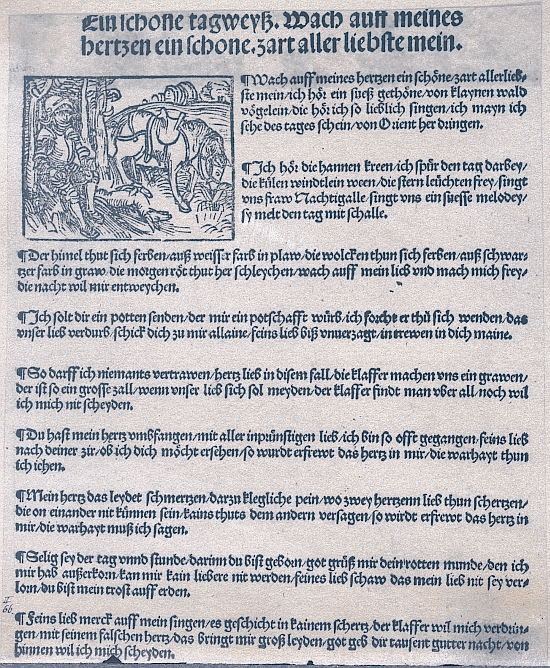 Ein schone tagweyß. Wach auff meines
hertzen ein schone. zart aller liebste mein.
¶Wach auff meines hertzen ein schöne/zart allerlieb-
ste mein/ich hör ein sueß gethöne/von klaynen wald
vögelein/die hör ich so lieblich singen/ich mayn ich
sehe des tages schein/von Orient her dringen.
¶Ich hör die hannen kreen/ich spür den tag darbey/
die külen windtlein ween/die stern leüchten frey/singt
vns fraw Nachtigalle/singt vns ein suesse melodey/
sy melt den tag mit schalle.
¶Der himel thut sich ferben/auß weisser farb in plaw/die wolcken thun sich ferben/auß schwar-
tzer farb in graw/die morgen röt thut her schleychen/wach auff mein lieb vnd mach mich frey/
die nacht wil mir entweychen.
¶Ich solt dir ein potten senden/der mir ein potschafft würb/ich forcht er thü sich wenden/das
vnser lieb verdurb/schick dich zu mir allaine/feins lieb biß vnuerzagt/in trewen in dich maine.
¶So darff ich niemants vertrawen/hertz lieb in disem fall/die klaffer machen vns ein grawen/
der ist so ein grosse zall/wenn vnser lieb sich sol meyden/der klaffer findt man vber all/noch wil
ich mich nit scheyden.
¶Du hast mein hertz vmbfangen/mit aller inprünstigen lieb/ich bin so offt gegangen/feins lieb
nach deiner zir/ob ich dich möcht ersehen/so wurdt erfrewt das hertz in mir/die warhayt thun
ich iehen.
¶Mein hertz das leydet schmertzen/darzu klegliche pein/wo zwey hertzenn lieb thun schertzen/
die on einander nit künnen sein/kains thuts dem andern versagen/so wirdt erfrewt das hertz in
mir/die warhayt muß ich sagen.
¶Selig sey der tag vnnd stunde/darinn du bist geborn/got grüß mir dein rotten munde/den ich
mir hab außerkorn/kan mir kain liebere nit werden/feines lieb schaw das mein lieb nit sey ver-
lorn/du bist mein trost auff erden.
¶Feins lieb merck auff mein singen/es geschicht in kainem schertz/der klaffer wil mich verdrin-
gen/mit seinem falschen hertz/das bringt mir groß leyden/got geb dir tausent gutter nacht/von
hinnen wil ich mich scheyden.